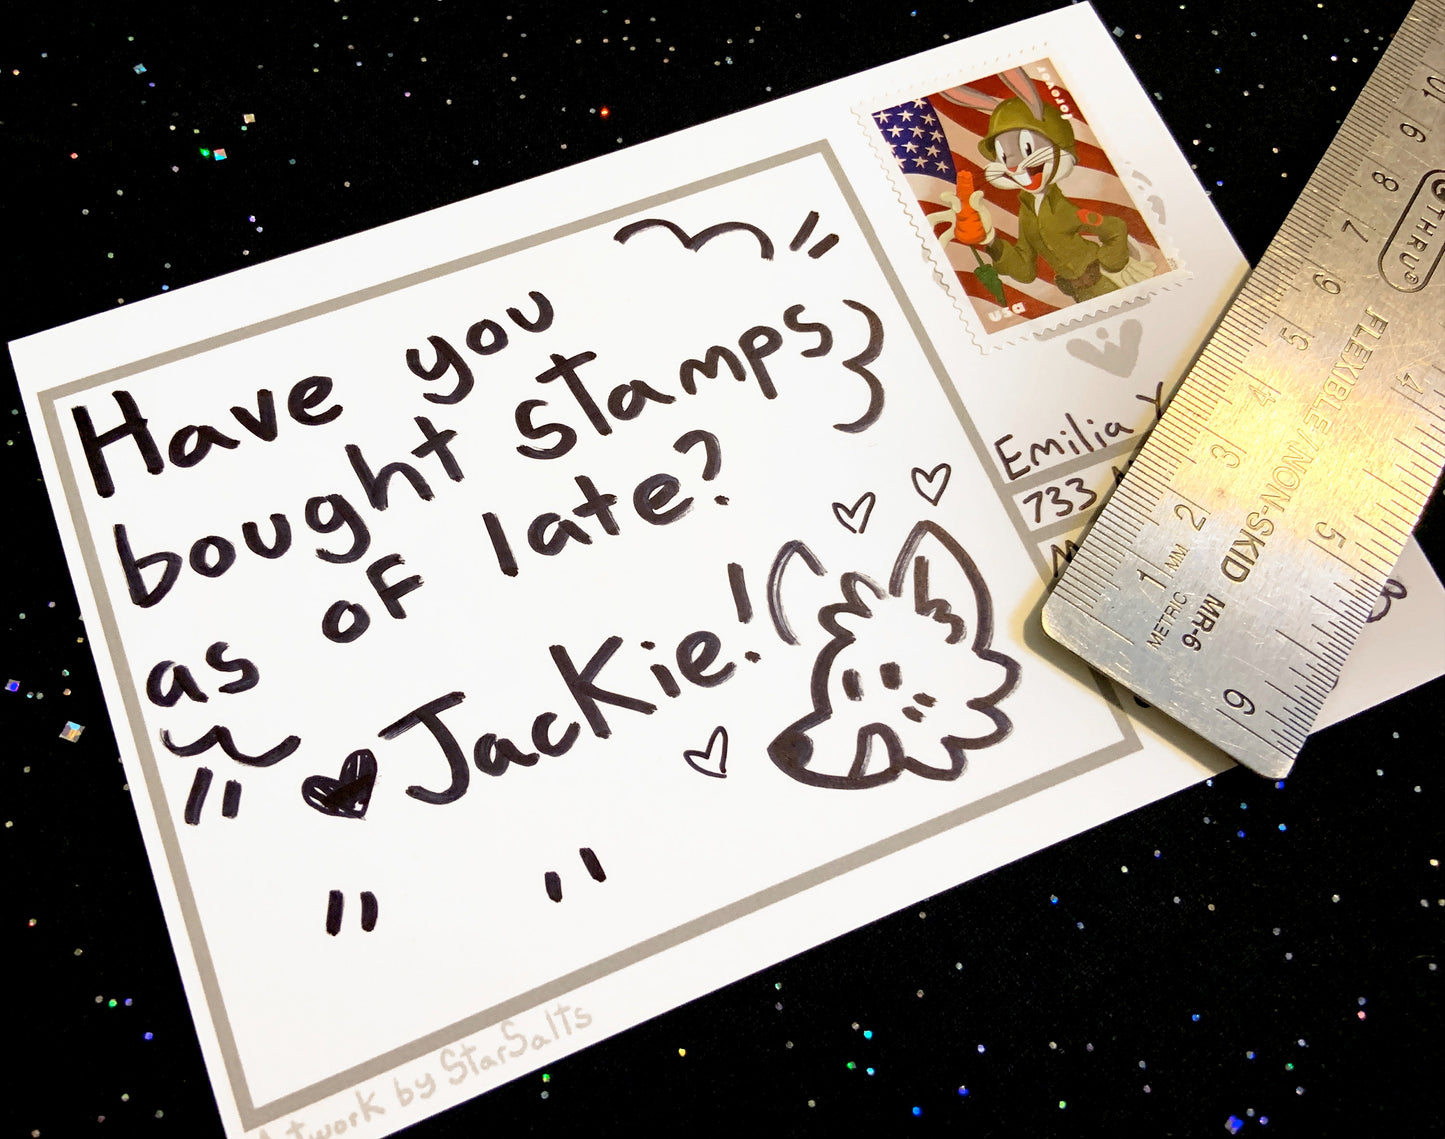 Have you
bought stamps
as of late?
Jackie!
Artwork by StarSalts
forever
USA
Emilia Y
733
THRU
FLEXIBLE/NON-SKID
MR-6
METRIC
MM
1 2 3 4 5 6 7 8 9 10
4 5 6